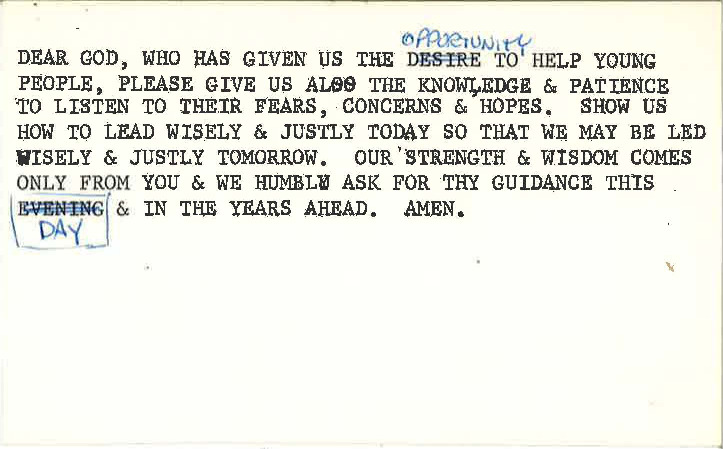 OPPORTUNITY
DEAR GOD, WHO HAS GIVEN US THE DESIRE TO HELP YOUNG
PEOPLE, PLEASE GIVE US ALSO THE KNOWLEDGE & PATIENCE
TO LISTEN TO THEIR FEARS, CONCERNS & HOPES. SHOW US
HOW TO LEAD WISELY & JUSTLY TODAY SO THAT WE MAY BE LED
WISELY & JUSTLY TOMORROW. OUR STRENGTH & WISDOM COMES
ONLY FROM YOU & WE HUMBLY ASK FOR THY GUIDANCE THIS
EVENING & IN THE YEARS AHEAD. AMEN.
DAY